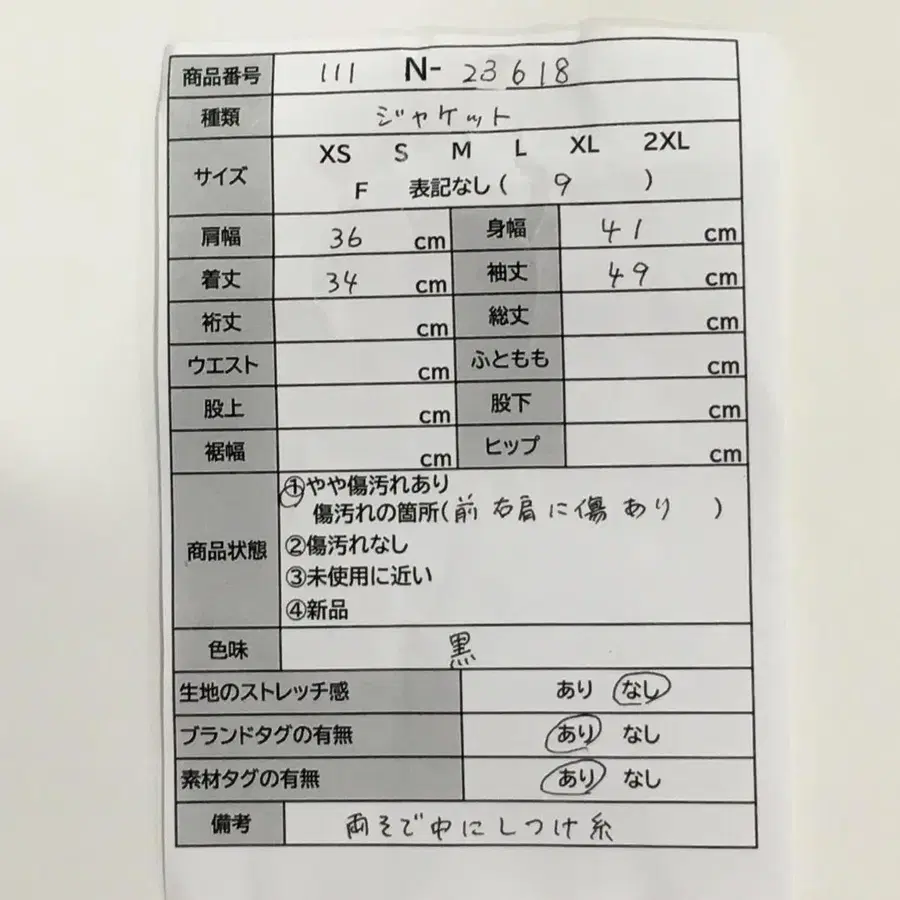 商品番号 111 N-23618
種類 ジャケット
サイズ XS S M L XL 2XL
F 表記なし( 9 )
肩幅 36 cm 身幅 41 cm
着丈 34 cm 袖丈 49 cm
裄丈 cm 総丈 cm
ウエスト cm ふともも cm
股上 cm 股下 cm
裾幅 cm ヒップ cm
商品状態 ①やや傷汚れあり
傷汚れの箇所(前 右肩に傷あり )
②傷汚れなし
③未使用に近い
④新品
色味 黒
生地のストレッチ感 あり なし
ブランドタグの有無 あり なし
素材タグの有無 あり なし
備考 両そで中にしつけ糸